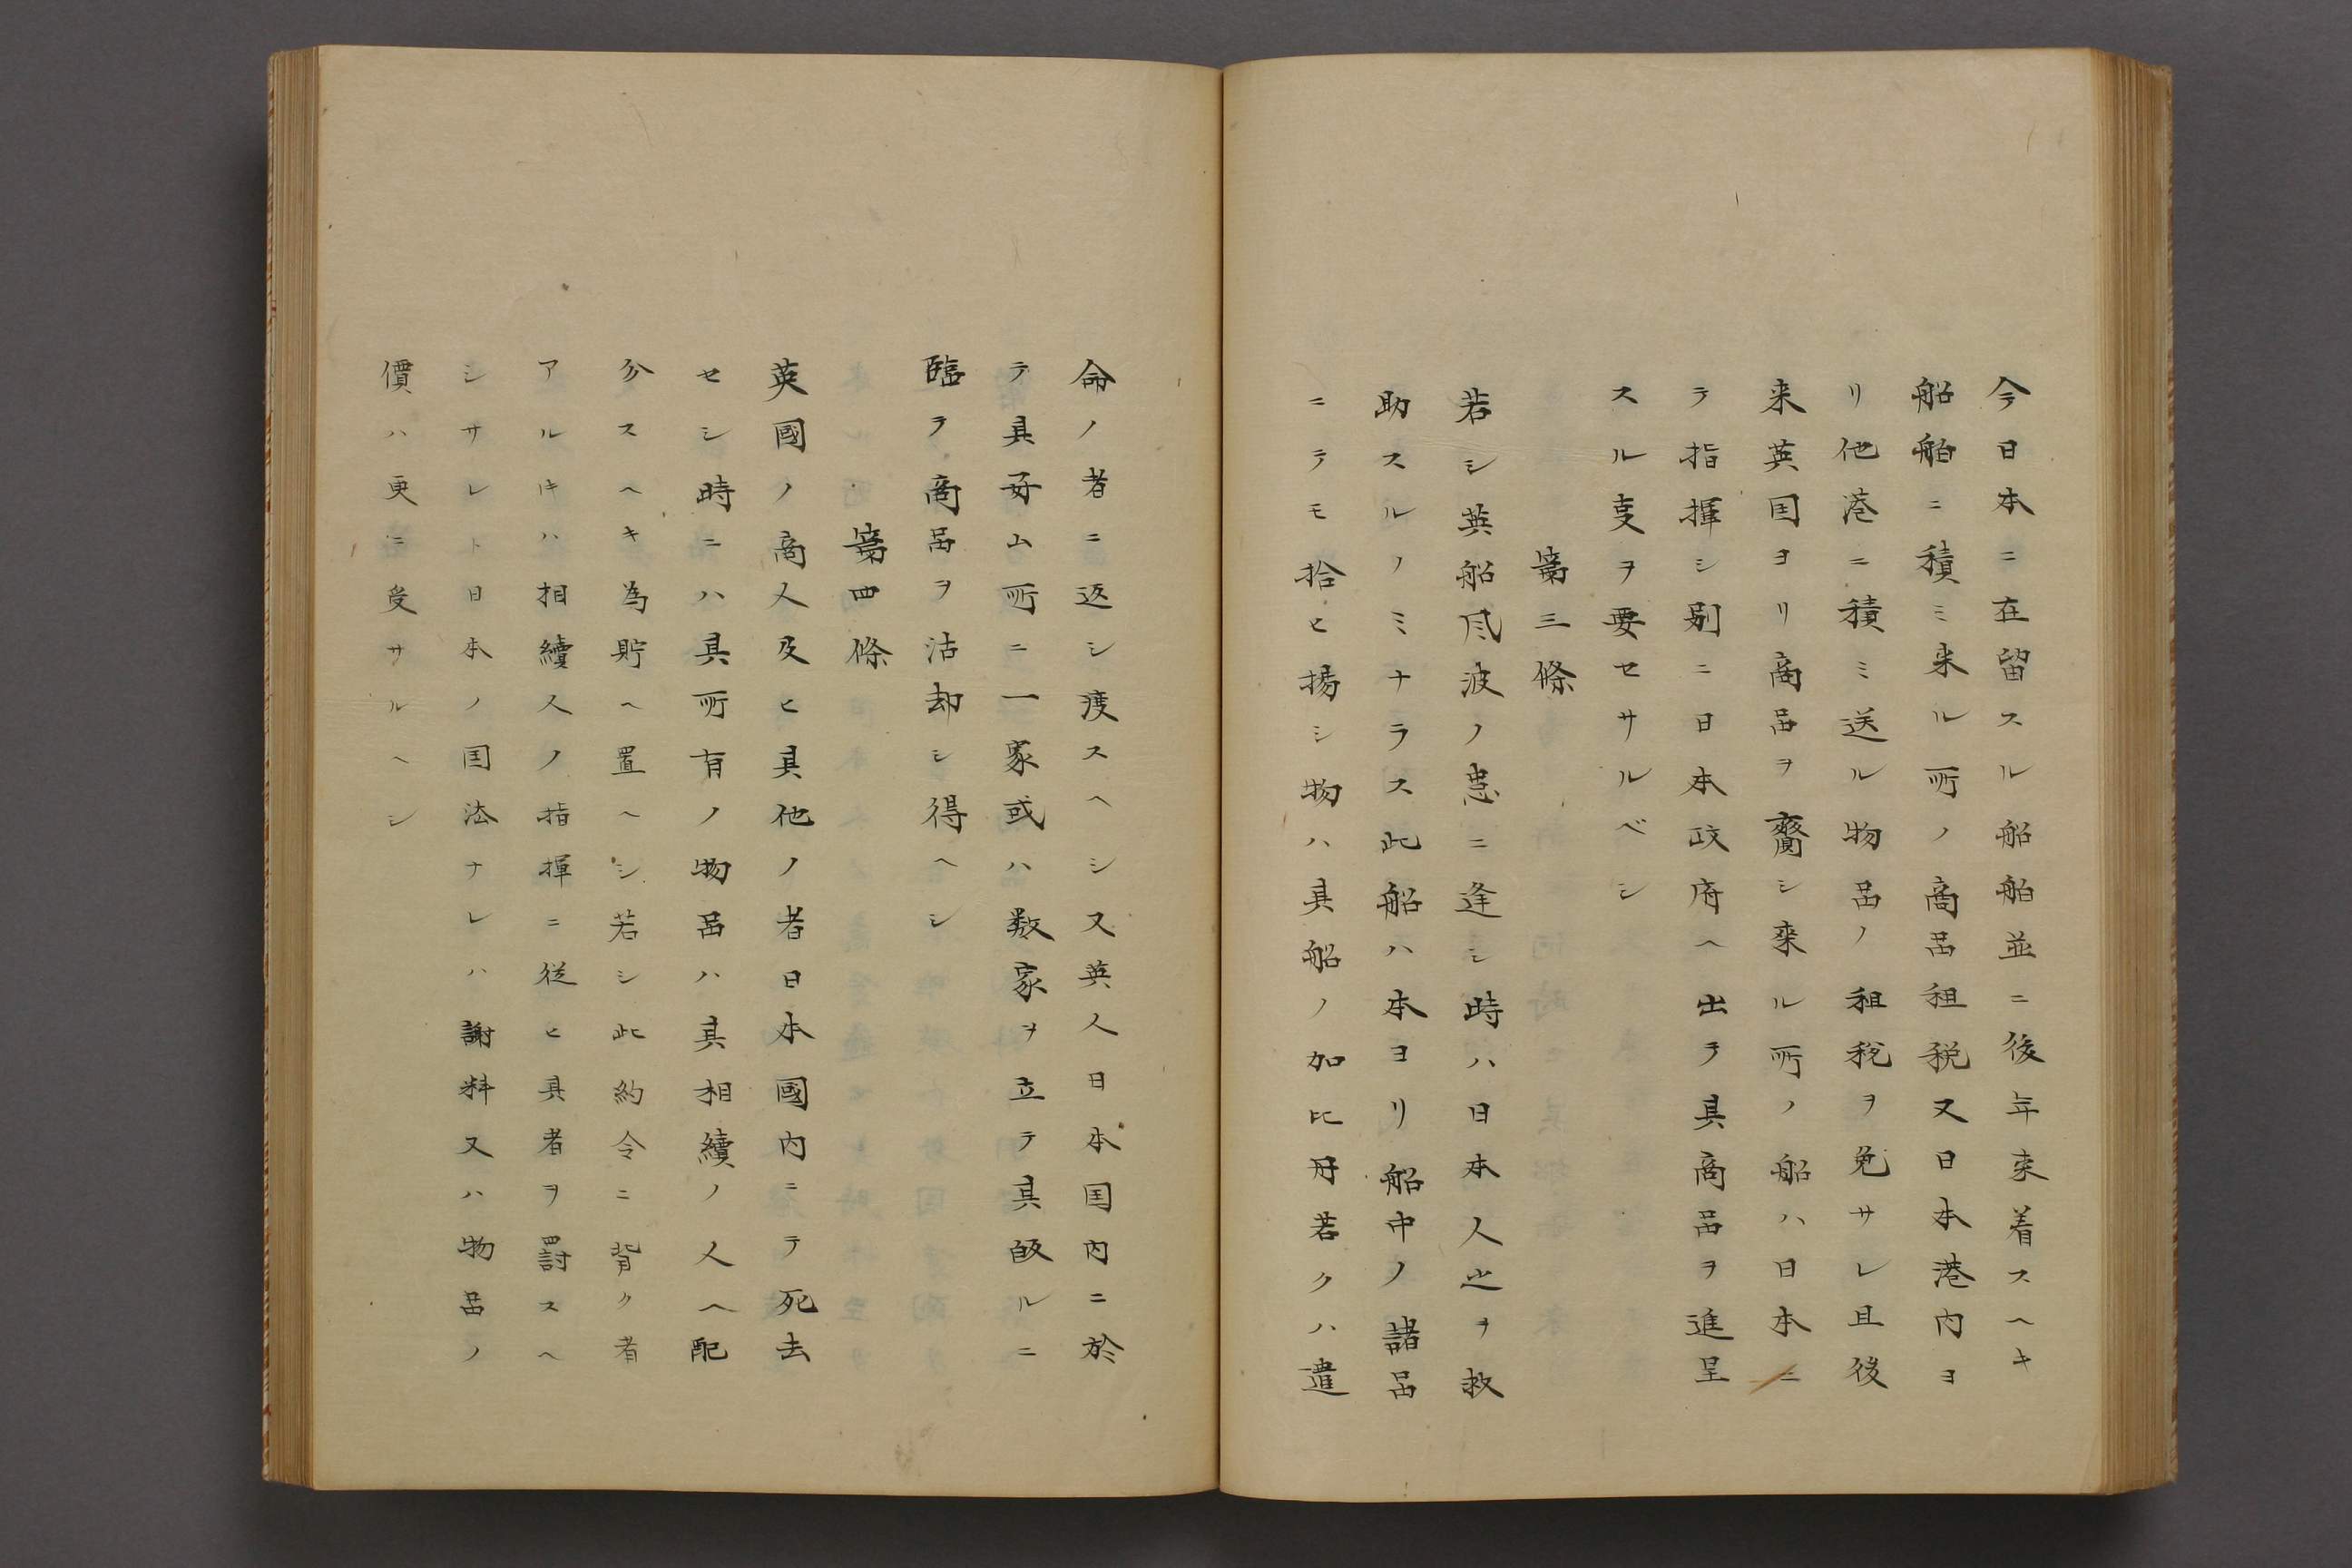 今日本ニ在留スル船舶並ニ後年来着スヘキ
船舶ニ積ミ来ル所ノ商品租税又日本港内ヨ
リ他港ニ積ミ送ル物品ノ租税ヲ免サレ且後
来英国ヨリ商品ヲ齎シ来ル所ノ船ハ日本ニ
テ指揮シ別ニ日本政府ヘ出テ其商品ヲ進呈
スル叓ヲ要セサルベシ
第三條
若シ英船風波ノ患ニ逢シ時ハ日本人之ヲ救
助スルノミナラス此船ハ本ヨリ船中ノ諸品
ニテモ拾ヒ揚シ物ハ其船ノ加比丹若クハ遣
命ノ者ニ返シ渡スヘシ又英人日本国内ニ於
テ其好ム所ニ一家或ハ数家ヲ立テ其皈ルニ
臨テ商品ヲ沽却シ得ヘシ
第四條
英國ノ商人及ヒ其他ノ者日本國内ニテ死去
セシ時ニハ其所有ノ物品ハ其相續ノ人ヘ配
分スヘキ為貯ヘ置ヘシ若シ此約令ニ背ク者
アル𪜈ハ相續人ノ指揮ニ従ヒ其者ヲ罸スヘ
シサレト日本ノ国法ナレハ謝料又ハ物品ノ
價ハ更ニ受サルヘシ